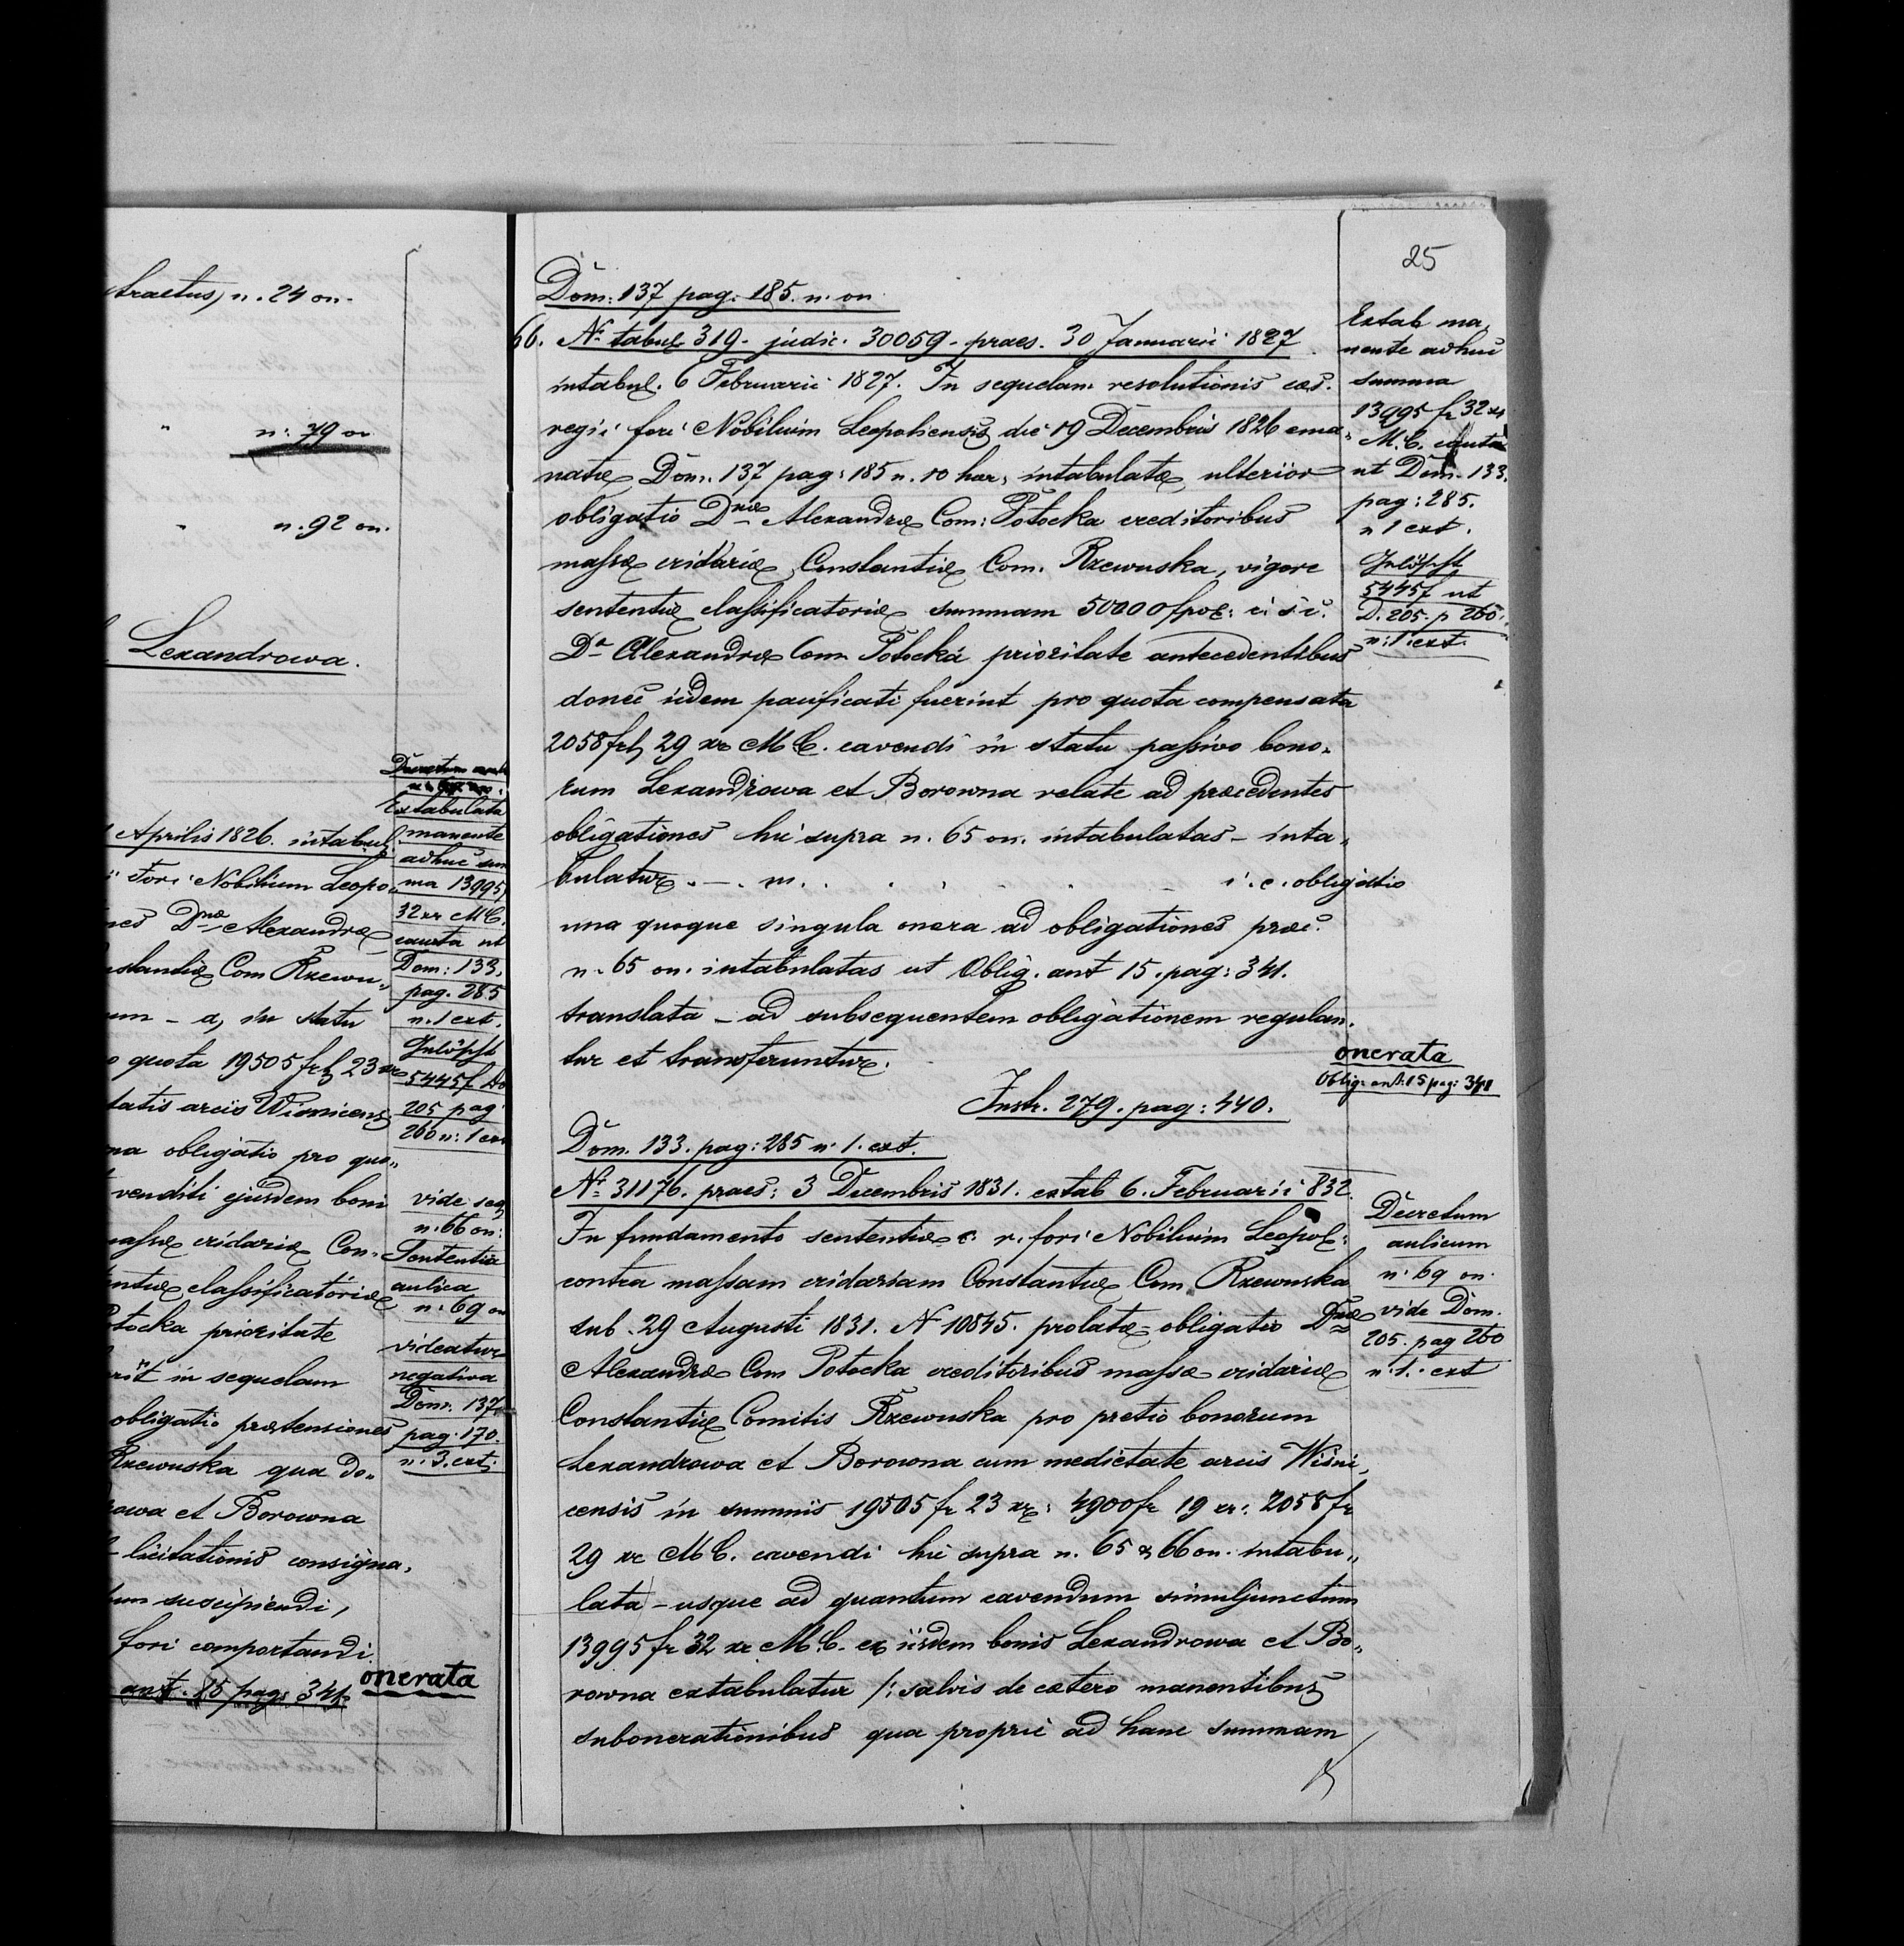 tractus, n. 24 on.
" n: 79 on
" n. 92 on.
Lexandrowa.
Extabulata
manente
adhuc sum
ma 13995
32 xr MC.
cauta ut
Dom: 133.
pag. 285
n. 1 ext.
Gelöscht
5445f Do
205 pag
260 n: 1 ext
vide seq
n: 66 on:
Sententia
aulica
n: 69 on
videatur
negativa
Dom. 137
pag. 170.
n. 3. ext:
Aprilis 1826. intabul
Fori Nobilium Leopo„
nes Dnae Alexandrae
nstantiae Com Rzewu„
um – a, in statu
o quota 19505 frh 23 xr
tatis arcis Wisnicens
na obligatio pro quo„
venditi ejusdem boni
massae cridariae Con„
ntiae classificatoriae
otocka prioritate
rit in sequelam
obligatio praetensiones
Rzewuska qua do„
rowa et Borowna
licitationis consigna,
tum suscipiendi,
fori comportandi
ant. 15 pag: 341. onerata
25
Dom: 137 pag: 185. n. on
66. No tabul 319. judic. 30059. praes. 30 Januarii 1827
intabul. 6 Februarii 1827. In sequelam resolutionis caes.
regii fori Nobilium Leopoliensis die 19 Decembris 1826 ema„
natae Dom. 137 pag: 185 n. 10 haer, intabulatae ulterior
obligatio Dnae Alexandrae Com: Potocka creditoribus
massae cridariae Constantiae Com. Rzewuska, vigore
sententiae classificatoriae summam 50000 fpol: c. s. c.
Da Alexandrae Com Potocka prioritate antecedentibus
donec iidem pacificati fuerint pro quota compensata
2058 frh 29 xr M C. cavendi in statu passivo bono„
rum Lexandrowa et Borowna relate ad praecedentes
obligationes hic supra n. 65 on. intabulatas – inta„
bulatur. – . m. . . . . . – i. e. obligatio
una quoque singula onera ad obligationes praec.
n. 65 on. intabulatas ut Oblig. ant 15. pag: 341.
translata – ad subsequentem obligationem regulan„
tur et transferuntur.
Instr. 279. pag: 440.
Extab ma„
nente adhuc
summa
13995 fr 32 xr
M. C. cauta
ut Dom. 133.
pag: 285.
n 1 ext.
Gelöscht
5445f ut
D. 205. p 260.
n: 1 ext.
onerata
Oblig. ant: 15 pag: 341
Dom. 133. pag: 285 n. 1. ext.
No 31176. praes: 3 Decembris 1831. extab 6. Februarii 832.
In fundamento sententiae c. r. fori Nobilium Leopol:
contra massam cridariam Constantiae Com. Rzewuska
sub. 29 Augusti 1831. N 10845. prolatae – obligatio Dnae
Alexandrae Com Potocka creditoribus massae cridariae
Constantiae Comitis Rzewuska pro pretio bonorum
Lexandrowa et Borowna cum medietate arcis Wisni„
censis in summis 19505 fr 23 xr: 4900 fr 19 xr: 2058 fr
29 xr M C. cavendi hic supra n. 65 & 66 on. intabu„
lata – usque ad quantum cavendum simuljunctim
13995 fr 32 xr M. C. ex iisdem bonis Lexandrowa et Bo„
rowna extabulatur /: salvis de caetero manentibus
subonerationibus qua proprie ad hanc summam
Decretum
aulicum
n. 69 on.
vide Dom.
205. pag 260
n. 1. ext